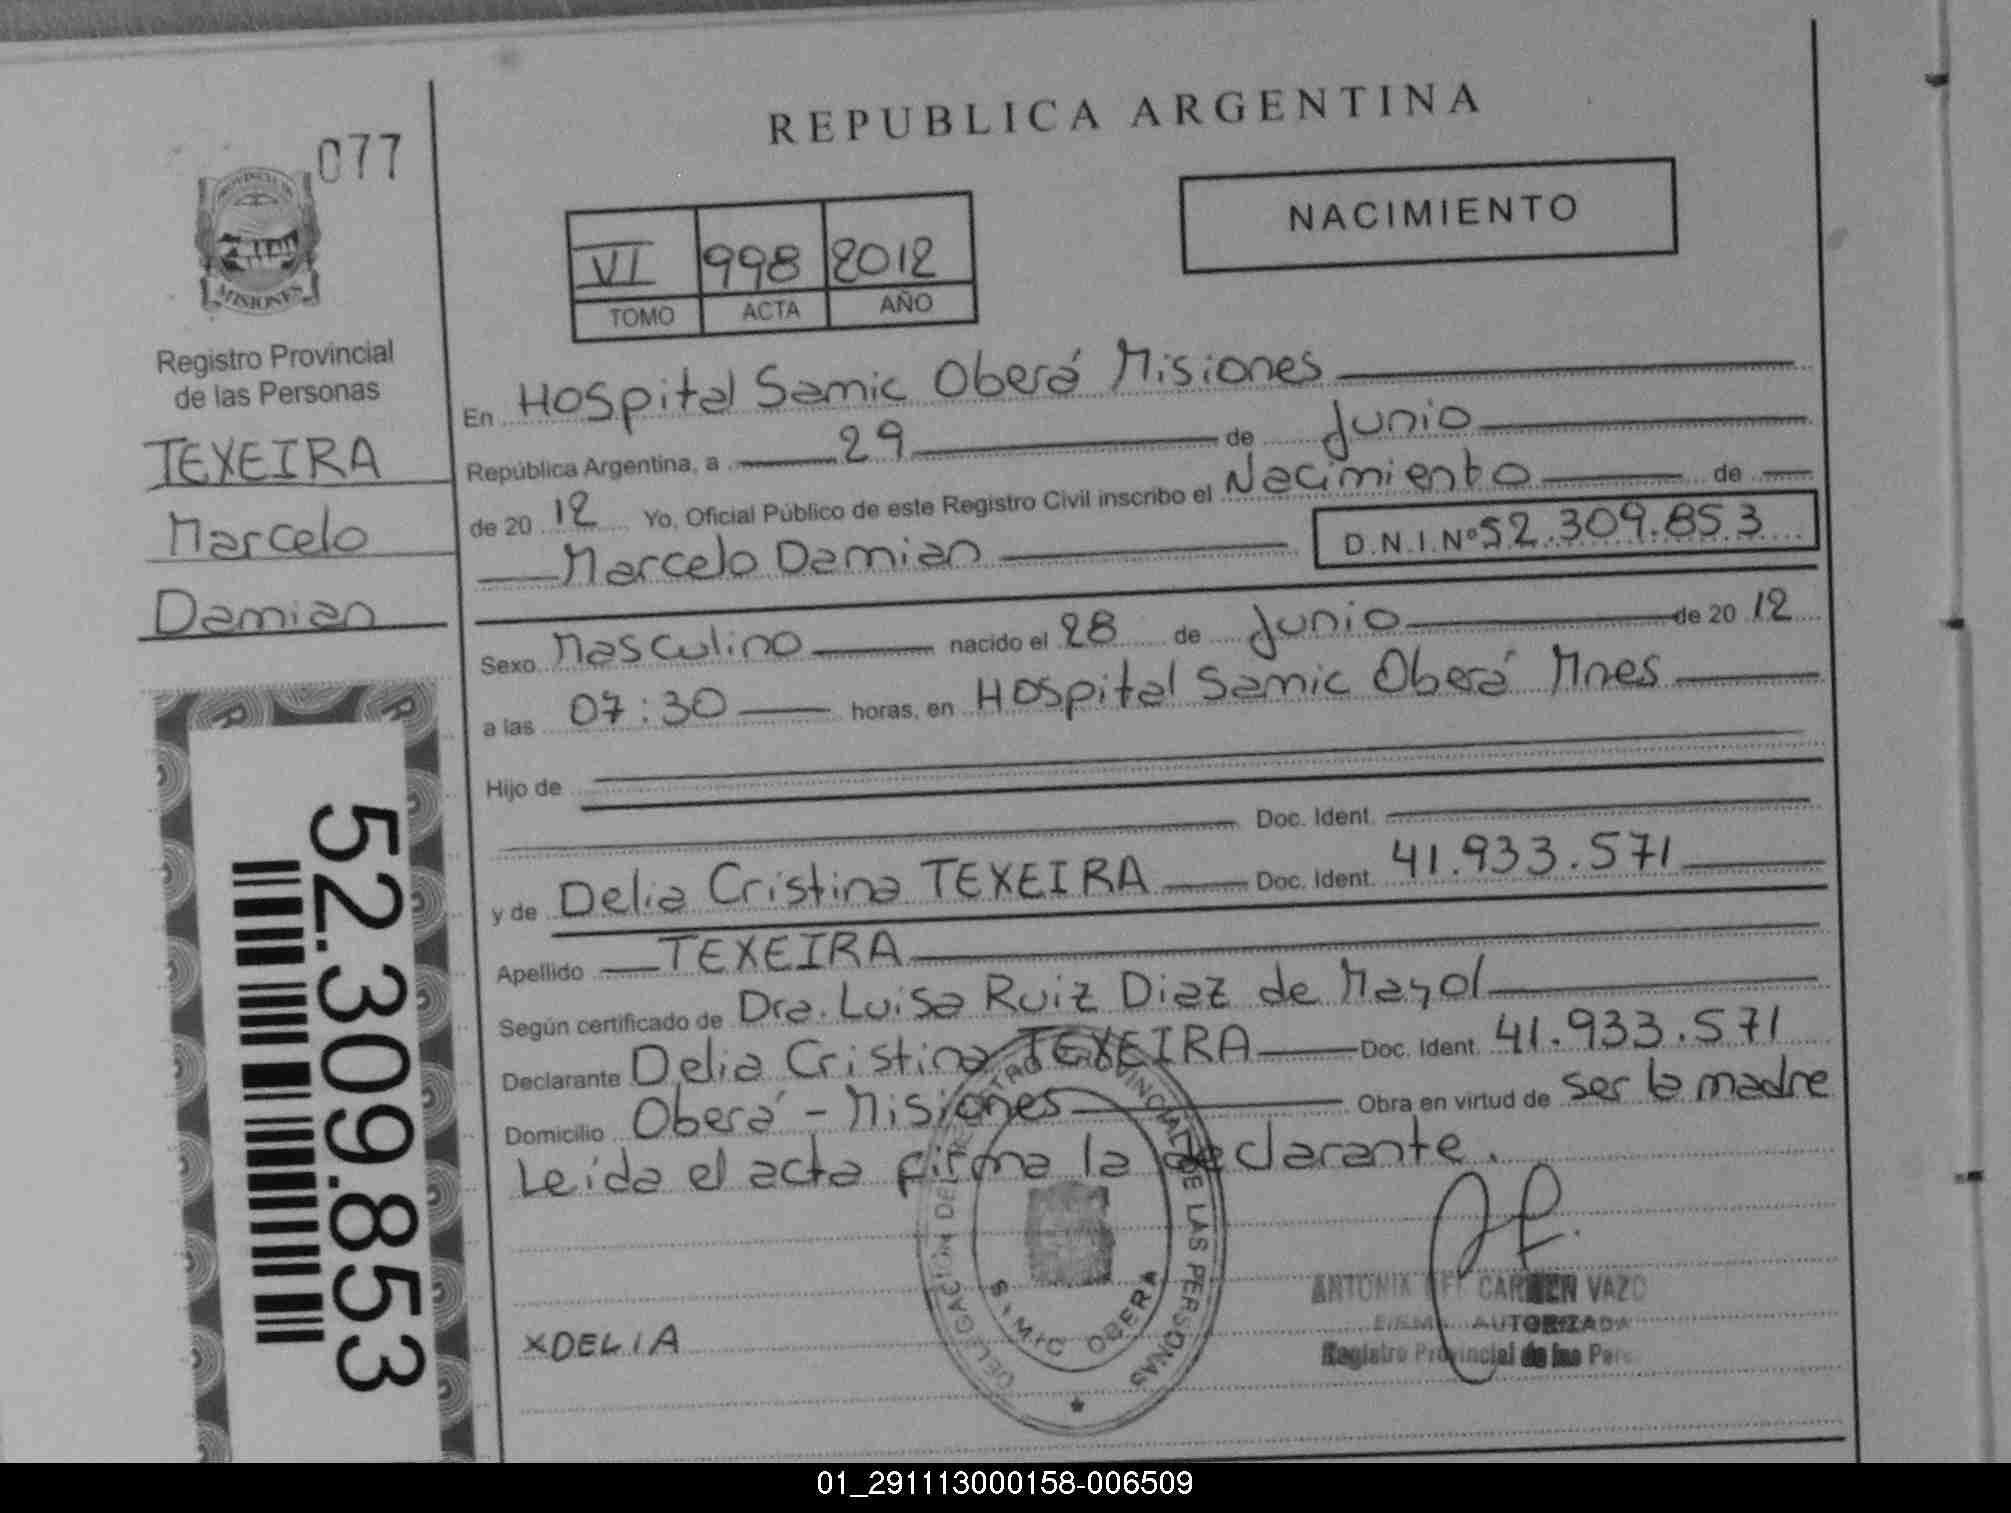 077
PROVINCIA DE
MISIONES
Registro Provincial
de las Personas
TEXEIRA
Marcelo
Damian
52.309.853
REPUBLICA ARGENTINA
NACIMIENTO
VI 998 2012
TOMO ACTA AÑO
En Hospital Samic Oberá Misiones
República Argentina, a 29 de Junio
de 20 12 Yo, Oficial Público de este Registro Civil inscribo el Nacimiento de
Marcelo Damian D.N.I.Nº 52.309.853
Sexo Masculino nacido el 28 de Junio de 20 12
a las 07:30 horas, en Hospital Samic Oberá Mnes
Hijo de
Doc. Ident.
y de Delia Cristina TEXEIRA Doc. Ident. 41.933.571
Apellido TEXEIRA
Según certificado de Dra. Luisa Ruiz Diaz de Mayol
Declarante Delia Cristina TEXEIRA Doc. Ident. 41.933.571
Domicilio Oberá - Misiones Obra en virtud de ser la madre
Leida el acta firma la declarante.
DELEGACIÓN DEL REGISTRO PROVINCIAL DE LAS PERSONAS
OBERA
ANTONIA DEL CARMEN VAZQ
FIRMA AUTORIZADA
Registro Provincial de las Pers
XDELIA
01_291113000158-006509